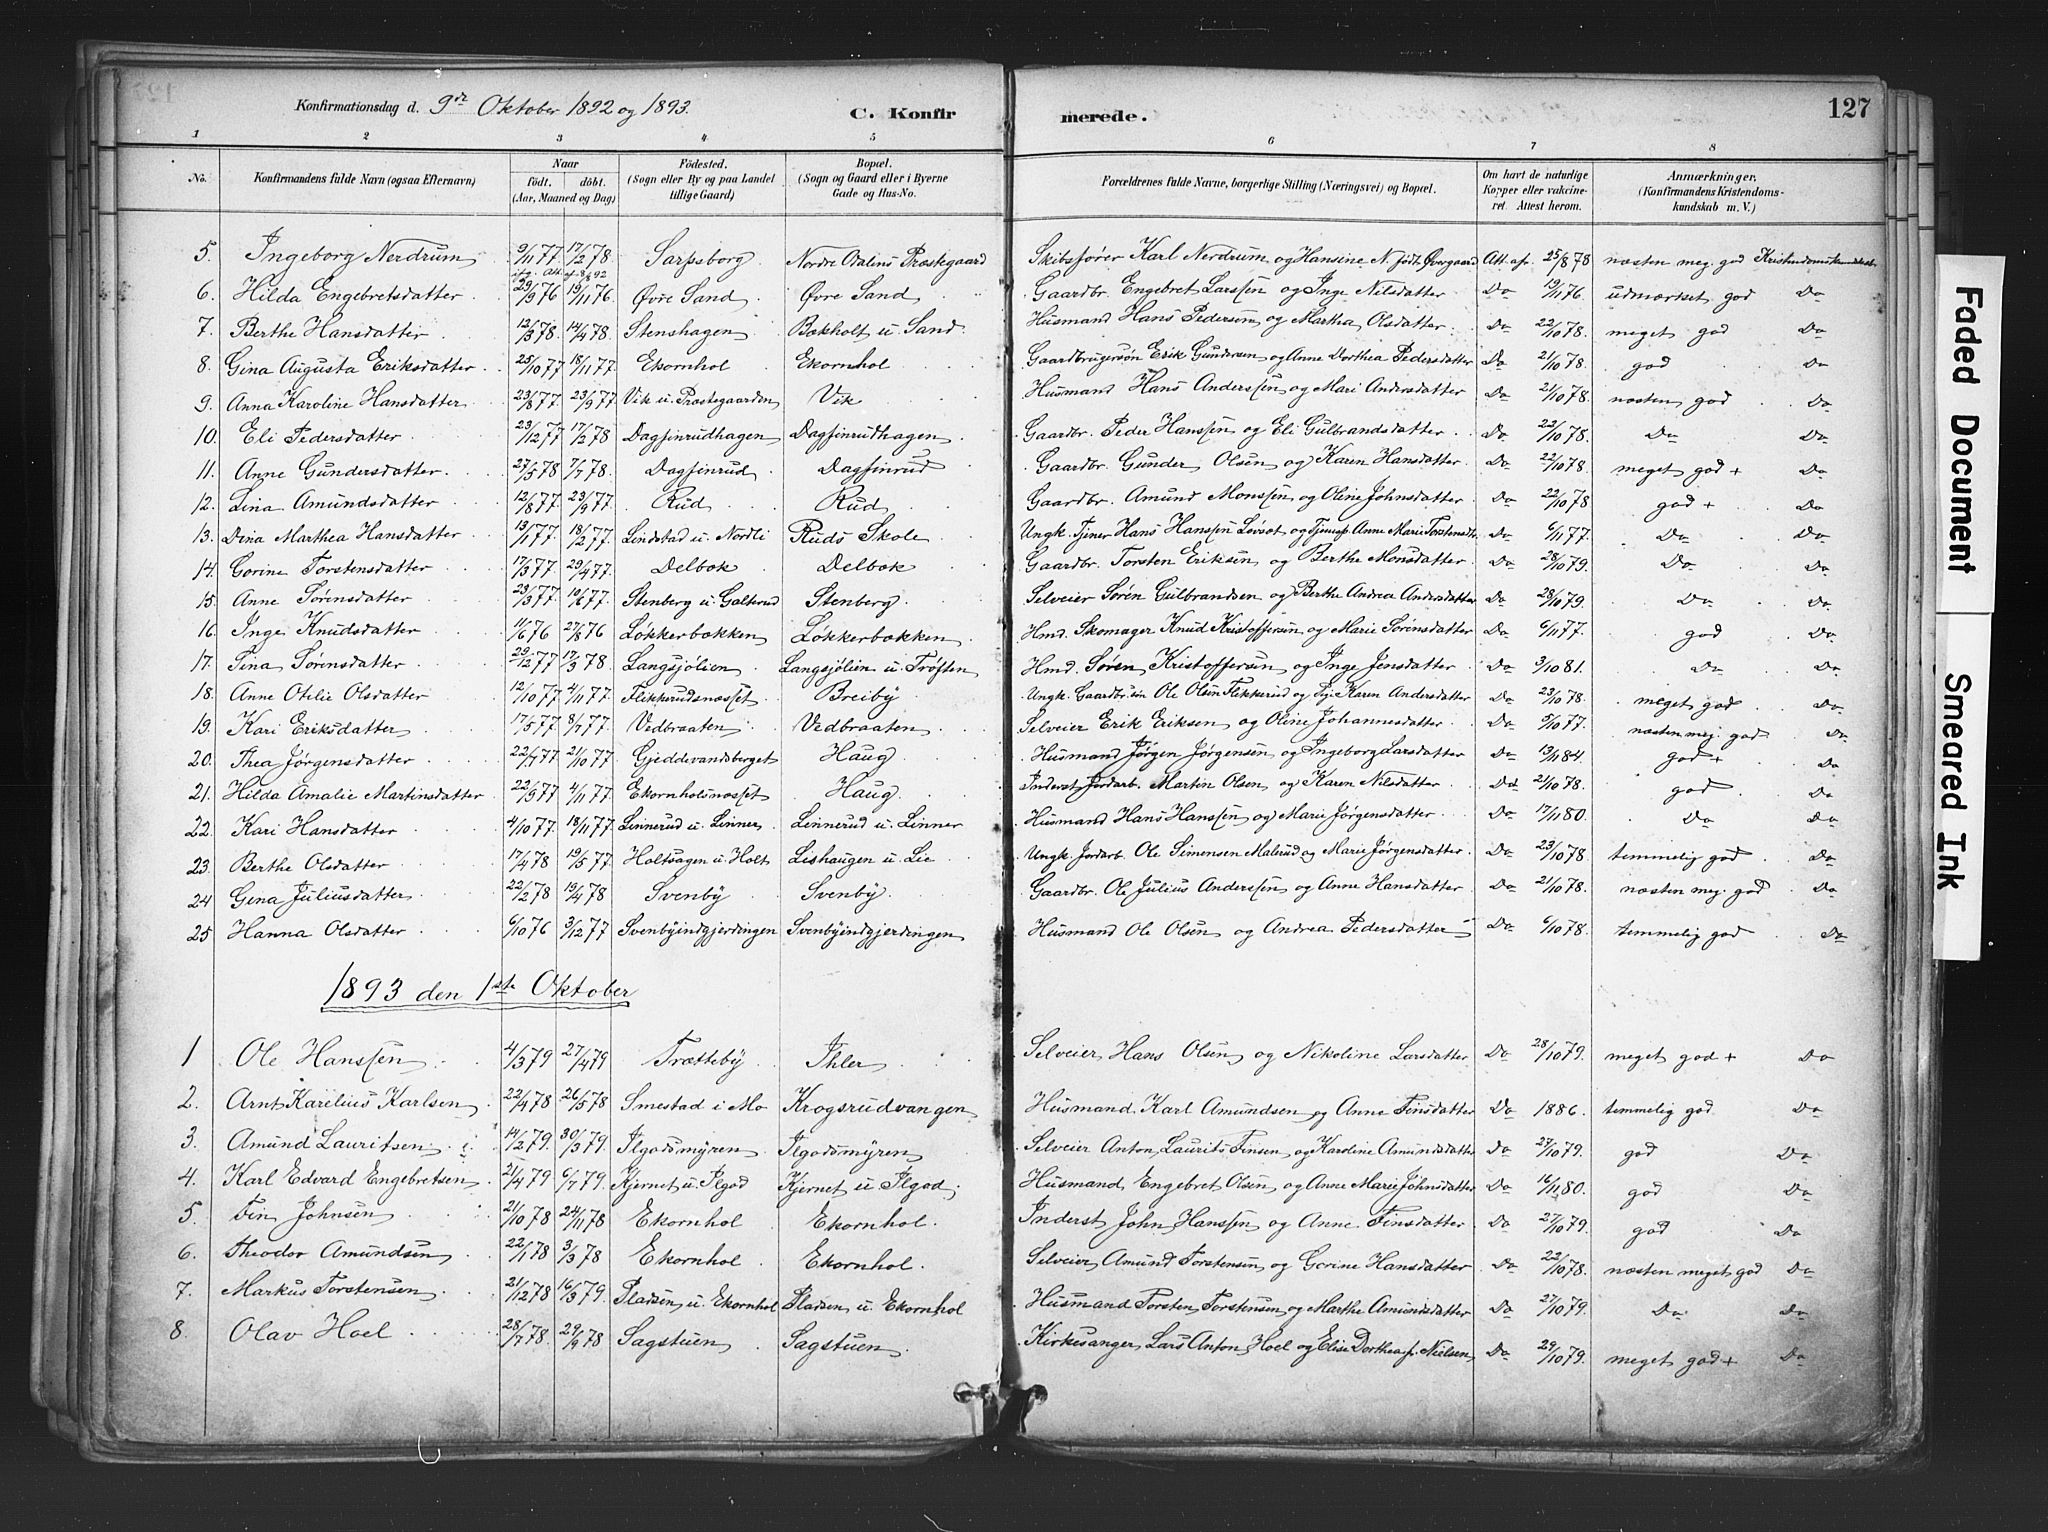 Konfirmationsdag d. 9de Oktober 1892 og 1893. C. Konfirmerede. 127
1 2 3 4 5 6 7 8
No. Konfirmandens fulde Navn (ogsaa Efternavn) Naar födt. döbt. (Aar, Maaned og Dag) Födested. (Sogn eller By og paa Landet tillige Gaard) Bopæl. (Sogn og Gaard eller i Byerne Gade og Hus-No. Forældrenes fulde Navne, borgerlige Stilling (Næringsvei) og Bopæl. Om havt de naturlige Kopper eller vakcineret. Attest herom. Anmærkninger. (Konfirmandens Kristendomskundskab m. V.)
5. Ingeborg Nerdrum 9/11 77. 17/2 78 Sarpsborg Nordre Odalens Præstegaard Skibsfører Karl Nerdrum og Hansine N. født Overgaard Att. af 25/8 78 næsten meg. god Kristendomskundskab
6. Hilda Engebretsdatter 29/9 76 19/11 76. Øvre Sand Øvre Sand Gaardbr. Engebret Larssen og Inge Nilsdatter Do 19/11 76. udmærket god Do
7. Berthe Hansdatter 12/3 78 14/4 78. Stenshagen Bækholt u. Sand Husmand Hans Pedersen og Martha Olsdatter Do 22/10 78. meget god Do
8. Gina Augusta Eriksdatter 25/10 77 18/11 77. Ekornhol Ekornhol Gaardbrugersøn Erik Gundersen og Anne Dorthea Pedersdatter Do 21/10 78. god Do
9. Anna Karoline Hansdatter 23/8 77. 23/9 77 Vik u. Præstegaarden Vik Husmand Hans Anderssen og Mari Andersdatter Do 21/10 78. næsten god Do
10. Eli Pedersdatter 23/12 77 17/2 78 Dagfinrudhagen Dagfinrudhagen Gaardbr. Peder Hanssen og Eli Gulbrandsdatter Do 22/10 78. Do Do
11. Anne Gundersdatter 27/5 78 7/7 78. Dagfinrud Dagfinrud Gaardbr. Gunder Olsen og Karen Hansdatter Do 22/10 78. meget god + Do
12. Lina Amundsdatter 12/8 77. 23/9 77 Rud Rud Gaardbr. Amund Monssen og Oline Johnsdatter Do 22/10 78 god + Do
13. Dina Marthea Hansdatter 13/1 77. 18/2 77. Lindstad u. Nordli Ruds Skole Ungk. Tjener Hans Hanssen Løvsot og Tjenesp. Anne Marie Torstensdtr Do 6/11 77. Do Do
14. Gorine Torstensdatter 17/3 77. 29/4 77. Delbæk Delbæk Gaardbr. Torsten Eriksen og Berthe Monsdatter Do 28/10 79. Do Do
15. Anne Sørensdatter 23/3 77. 10/6 77. Stenberg u. Galterud Stenberg Selveier Søren Gulbrandsen og Berthe Andrea Andersdatter Do 28/10 79. Do Do
16. Inge Knudsdatter 11/6 76 27/8 76 Løkkerbækken Løkkerbækken Hmd. Skomager Knud Kristoffersen og Marie Sørensdatter Do 6/11 77. god Do
17. Tina Sørensdatter 29/12 77 17/3 78. Langsjølien Langsjølien u. Trøften Hmd. Søren Kristoffersen og Inge Jensdatter Do 3/10 81. Do Do
18. Anne Otilie Olsdatter 12/10 77. 4/11 77. Flikkerudsnæsset Breiby Ungk. Gaardbr.søn Ole Olsen Flikkerud og Pj. Karen Andersdatter Do 23/10 78. meget god Do
19. Kari Eriksdatter 17/5 77. 8/7 77. Vedbraaten Vedbraaten Selveier Erik Eriksen og Oline Johannesdatter Do 5/10 77. næsten mej. god Do
20. Thea Jørgensdatter 22/7 77 21/10 77. Gjeddevandsberget Haug Husmand Jørgen Jørgensen og Ingeborg Larsdatter Do 13/11 84. god + Do
21. Hilda Amalie Martinsdatter 22/9 77 4/11 77. Ekornholsnæsset Haug Inderst Jordarb. Martin Olsen og Karen Nilsdatter Do 21/10 78. god Do
22. Kari Hansdatter 4/10 77. 18/11 77. Linnerud u. Linner Linnerud u. Linner Husmand Hans Hanssen og Marie Jørgensdatter Do 17/11 80. Do Do
23. Berthe Olsdatter 17/4 78 19/5 77. Holtsagen u. Holt Lishaugen u. Lie Ungk. Jordarb. Ole Simensen Malerud og Marie Jørgensdatter Do 23/10 78. temmelig god Do
24 Gena Juliusdatter 22/2 78 19/4 78 Svenby Svenby Gaardbr. Ole Julius Anderssen og Anne Hansdatter Do 21/10 78. næsten mej. god Do
25 Hanna Olsdatter 6/10 76 3/12 77 Svenbyindgjerdingen Svenbyindgjerdingen Husmand Ole Olsen og Andrea Pedersdatter Do 6/10 78. temmelig god Do
1893 den 1ste Oktober
1 Ole Hanssen 4/3 79 27/4 79 Trætteby Ihler Selveier Hans Olsen og Nikoline Larsdatter Do 28/10 79. meget god + Do
2. Arnt Karelius Karlsen 22/4 78 26/5 78 Smestad i Mo Krogsrudvangen Husmand Karl Amundsen og Anne Finsdatter Do 1886. temmelig god Do
3. Amund Lauritsen 14/2 79. 30/3 79. Ilgodsmyren Ilgodsmyren Selveier Anton Laurits Finsen og Karoline Amundsdatter Do 27/10 79. god Do
4. Karl Edvard Engebretsen 21/4 79 6/7 79. Kjernet u. Ilgod Kjernet u Ilgod Husmand Engebret Olsen og Anne Marie Johnsdatter Do 16/11 80. god Do
5. Fin Johnsen 21/10 78 24/11 78 Ekornhol Ekornhol. Inderst John Hanssen og Anne Finsdatter Do 27/10 79. god Do
6. Theodor Amundsen 22/1 78 3/3 78 Ekornhol Ekornhol. Selveier Amund Torstensen og Gorine Hansdatter Do 22/10 78. næsten meget god Do
7. Markus Torstensen 21/12 78 16/3 79. Pladsen u. Ekornhol Pladsen u. Ekornhol Husmand Torsten Torstensen og Marthe Amundsdatter Do 27/10 79. Do Do
8. Olav Hoel 28/7 78. 29/9 78 Sagstuen Sagstuen Kirkesanger Lars Anton Hoel og Elise Dorthea f. Nielsen Do 29/10 79. meget god + Do
Faded Document
Smeared Ink